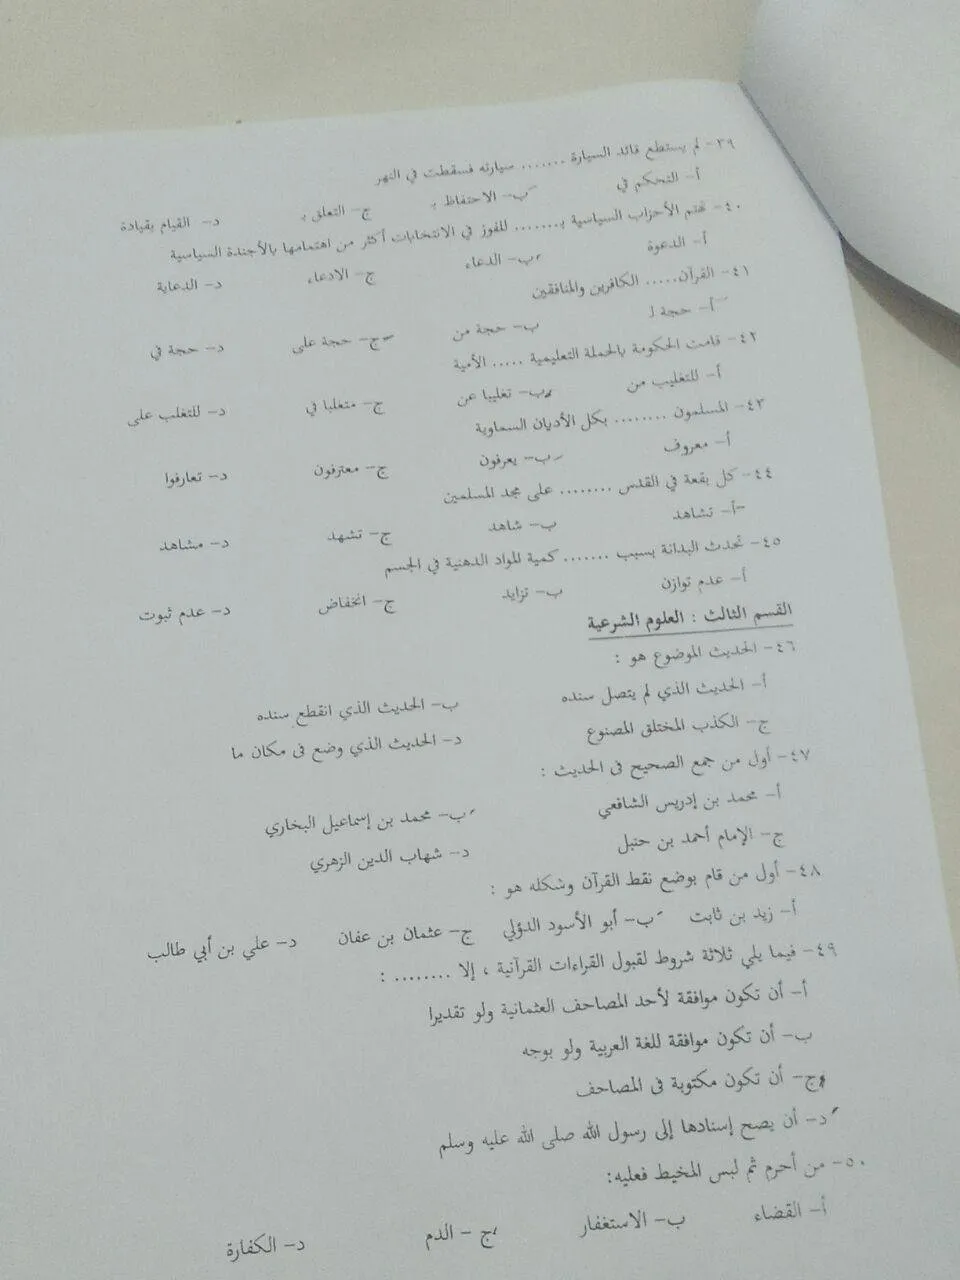 ٣٩- لم يستطع قائد السيارة ....... سيارته فسقطت في النهر
أ- التحكم في ب- الاحتفاظ بـ ج- التعلق بـ د- القيام بقيادة
٤٠- تهتم الأحزاب السياسية بـ....... للفوز في الانتخابات أكثر من اهتمامها بالأجندة السياسية
أ- الدعوة ب- الدعاء ج- الادعاء د- الدعاية
٤١- القرآن..... الكافرين والمنافقين
أ- حجة لـ ب- حجة من ج- حجة على د- حجة في
٤٢- قامت الحكومة بالحملة التعليمية ..... الأمية
أ- للتغليب من ب- تغليبا عن ج- متغلبا في د- للتغلب على
٤٣- المسلمون ........ بكل الأديان السماوية
أ- معروف ب- يعرفون ج- معترفون د- تعارفوا
٤٤- كل بقعة في القدس ........ على مجد المسلمين
أ- تشاهد ب- شاهد ج- تشهد د- مشاهد
٤٥- تحدث البدانة بسبب ....... كمية المواد الدهنية في الجسم
أ- عدم توازن ب- تزايد ج- انخفاض د- عدم ثبوت
القسم الثالث : العلوم الشرعية
٤٦- الحديث الموضوع هو :
أ- الحديث الذي لم يتصل سنده ب- الحديث الذي انقطع سنده
ج- الكذب المختلق المصنوع د- الحديث الذي وضع فى مكان ما
٤٧- أول من جمع الصحيح فى الحديث :
أ- محمد بن إدريس الشافعي ب- محمد بن إسماعيل البخاري
ج- الإمام أحمد بن حنبل د- شهاب الدين الزهري
٤٨- أول من قام بوضع نقط القرآن وشكله هو :
أ- زيد بن ثابت ب- أبو الأسود الدؤلي ج- عثمان بن عفان د- علي بن أبي طالب
٤٩- فيما يلي ثلاثة شروط لقبول القراءات القرآنية ، إلا ........ :
أ- أن تكون موافقة لأحد المصاحف العثمانية ولو تقديرا
ب- أن تكون موافقة للغة العربية ولو بوجه
ج- أن تكون مكتوبة فى المصاحف
د- أن يصح إسنادها إلى رسول الله صلى الله عليه وسلم
٥٠- من أحرم ثم لبس المخيط فعليه:
أ- القضاء ب- الاستغفار ج - الدم د- الكفارة